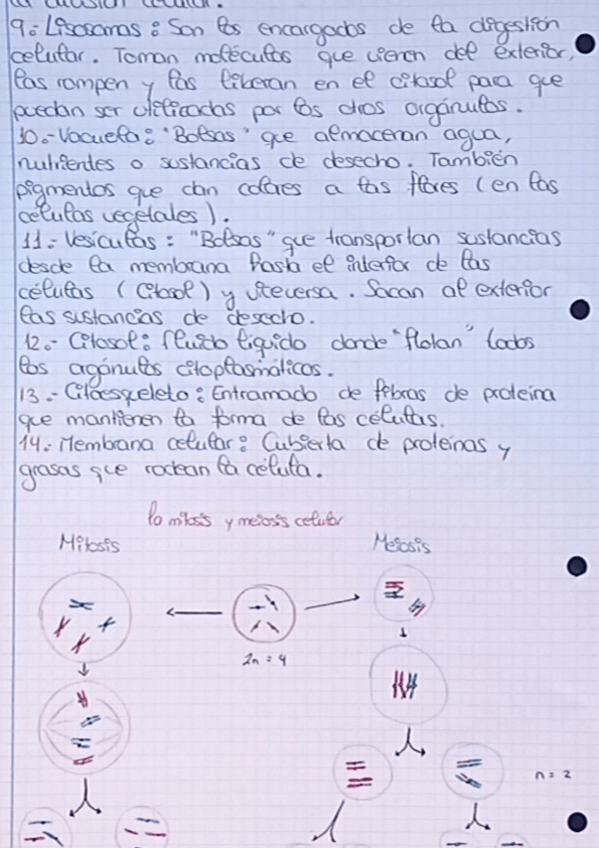 la división celular.
9.- Lisosomas: Son los encargados de la digestión
celular. Toman moléculas que vienen del exterior,
las rompen y las liberan en el citosol para que
puedan ser utilizadas por los otros orgánulos.
10.- Vacuola: "Bolsas" que almacenan agua,
nutrientes o sustancias de desecho. También
pigmentos que dan colores a las flores (en las
células vegetales).
11.- Vesículas: "Bolsas" que transportan sustancias
desde la membrana hasta el interior de las
células (Citosol) y viceversa. Sacan al exterior
las sustancias de desecho.
12.- Citosol: fluido líquido donde "flotan" todos
los orgánulos citoplasmáticos.
13.- Citoesqueleto: Entramado de fibras de proteína
que mantienen la forma de las células.
14.- Membrana celular: Cubierta de proteínas y
grasas que rodean la célula.
La mitosis y meiosis celular
Mitosis
Meiosis
2n = 4
n = 2